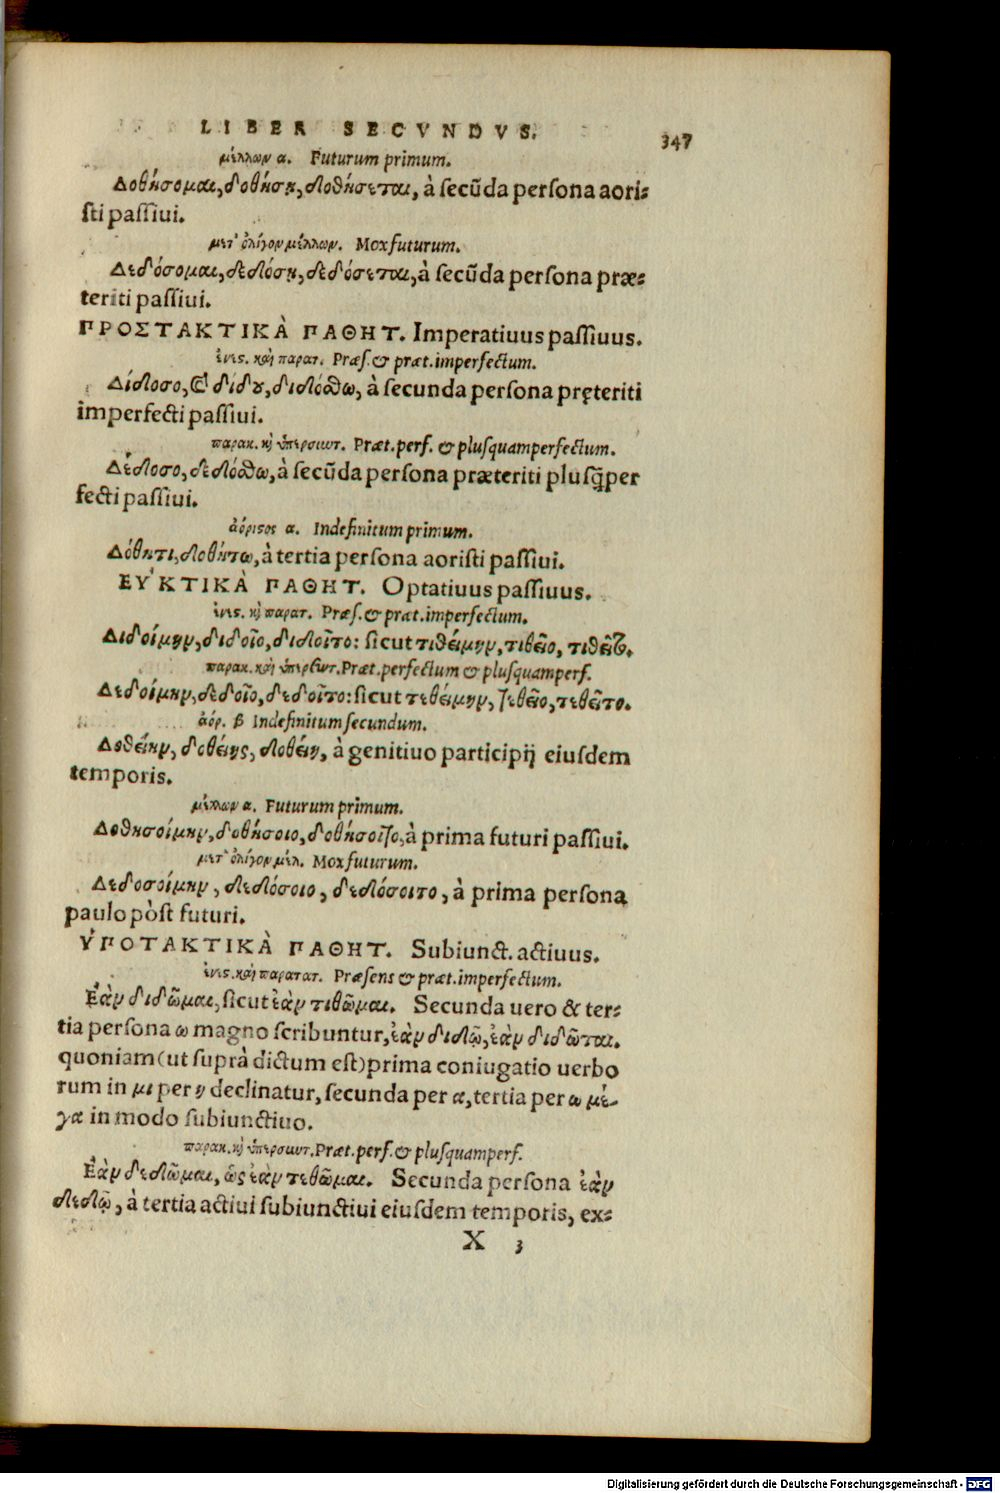 LIBER SECVNDVS. 347
μέλλων α. Futurum primum.
Δοθήσομαι, δοθήσῃ, δοθήσεται, à secũda persona aori-
sti passiui.
μετ' ὀλίγον μέλλων. Mox futurum.
Δεδόσομαι, δεδόσῃ, δεδόσεται, à secũda persona præ-
teriti passiui.
ΠΡΟΣΤΑΚΤΙΚᾺ ΠΑΘΗΤ. Imperatiuus passiuus.
ἐνεσ. καὶ παρατ. Præs. & præt. imperfectum.
Δίδοσο, & δίδου, διδόσθω, à secunda persona pręteriti
imperfecti passiui.
παρακ. κὶ ὑπερσιωτ. Præt. perf. & plusquamperfectum.
Δέδοσο, δεδόσθω, à secũda persona præteriti plusq̃per
fecti passiui.
ἀόριστος α. Indefinitum primum.
Δόθητι, δοθήτω, à tertia persona aoristi passiui.
ΕΥ᾿ΚΤΙΚᾺ ΠΑΘΗΤ. Optatiuus passiuus.
ἐνεσ. κὶ παρατ. Præs. & præt. imperfectum.
Διδοίμην, διδοῖο, διδοῖτο: sicut τιθείμην, τιθεῖο, τιθεῖτο.
παρακ. καὶ ὑπερσωτ. Præt. perfectum & plusquamperf.
Δεδοίμην, δεδοῖο, δεδοῖτο: sicut τεθείμην, τεθεῖο, τεθεῖτο.
ἀόρ. β Indefinitum secundum.
Δοθείην, δοθείης, δοθείη, à genitiuo participij eiusdem
temporis.
μέλλων α. Futurum primum.
Δοθησοίμην, δοθήσοιο, δοθήσοιτο, à prima futuri passiui.
μετ' ὀλίγον μέλ. Mox futurum.
Δεδοσοίμην, δεδόσοιο, δεδόσοιτο, à prima persona
paulo pòst futuri.
ὙΠΟΤΑΚΤΙΚᾺ ΠΑΘΗΤ. Subiunct. actiuus.
ἐνεσ. καὶ παρατατ. Præsens & præt. imperfectum.
Ἐὰν διδῶμαι, sicut ἐὰν τιθῶμαι. Secunda uero & ter-
tia persona ω magno scribuntur, ἐὰν διδῷ, ἐὰν διδῶται.
quoniam (ut suprà dictum est) prima coniugatio uerbo
rum in μι per η declinatur, secunda per α, tertia per ω μέ-
γα in modo subiunctiuo.
παρακ. κὶ ὑπερσιωτ. Præt. perf. & plusquamperf.
Ἐὰν δεδῶμαι, ὡς ἐὰν τεθῶμαι. Secunda persona ἐὰν
δεδῷ, à tertia actiui subiunctiui eiusdem temporis, ex-
X 3
Digitalisierung gefördert durch die Deutsche Forschungsgemeinschaft - DFG